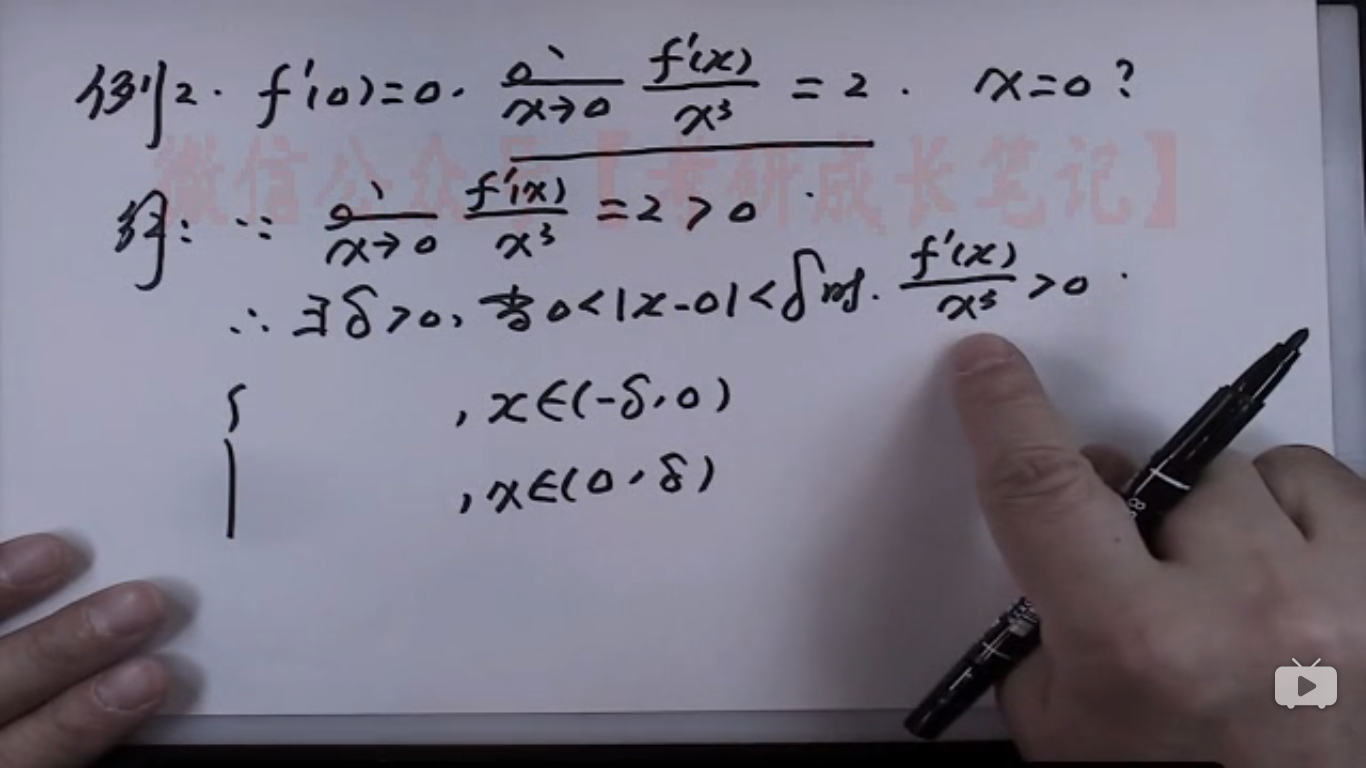 例2. f'(0)=0. lim x→0 f'(x)/x³ = 2. x=0?
微信公众号【考研成长笔记】
解: ∵ lim x→0 f'(x)/x³ = 2 > 0.
∴ ∃δ>0, 当0<|x-0|<δ时. f'(x)/x³ >0.
{ , x∈(-δ,0)
, x∈(0,δ)